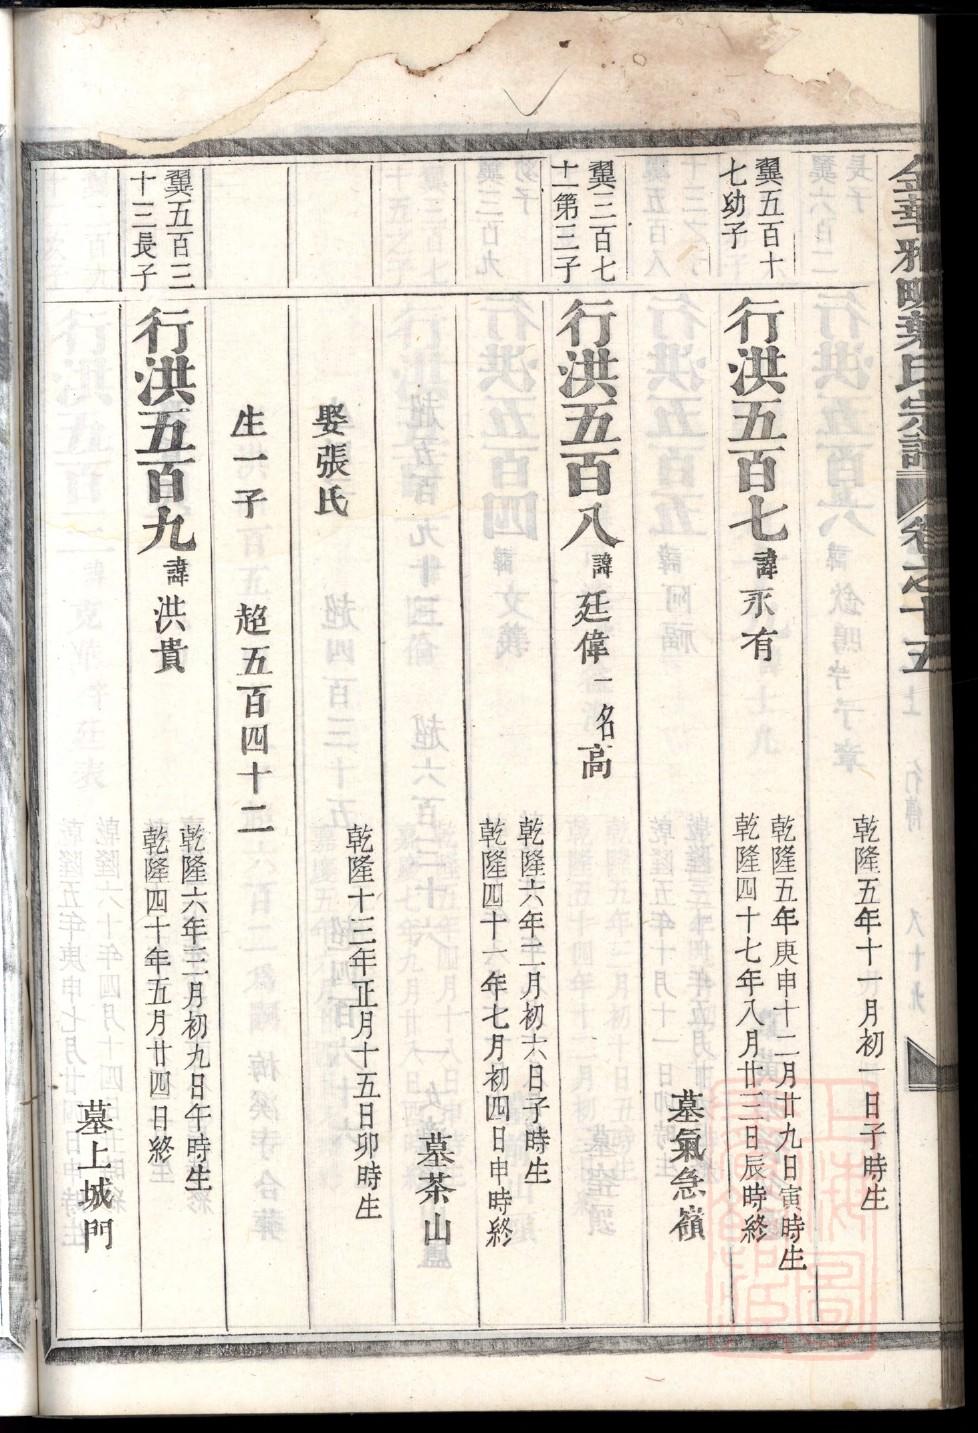 金華雅畈葉氏宗譜 卷之十五
乾隆五年十一月初一日子時生
翼五百十
七幼子
行洪五百七 諱永有
乾隆五年庚申十二月廿九日寅時生
乾隆四十七年八月廿三日辰時終
墓氣急嶺
翼三百七
十一第三子
行洪五百八 諱廷偉 一名高
乾隆六年二月初六日子時生
乾隆四十一年七月初四日申時終
墓茶山
娶張氏
乾隆十三年正月十五日卯時生
生一子 超五百四十二
翼五百三
十三長子
行洪五百九 諱洪貴
乾隆六年三月初九日午時生
乾隆四十年五月廿四日終
墓上城門